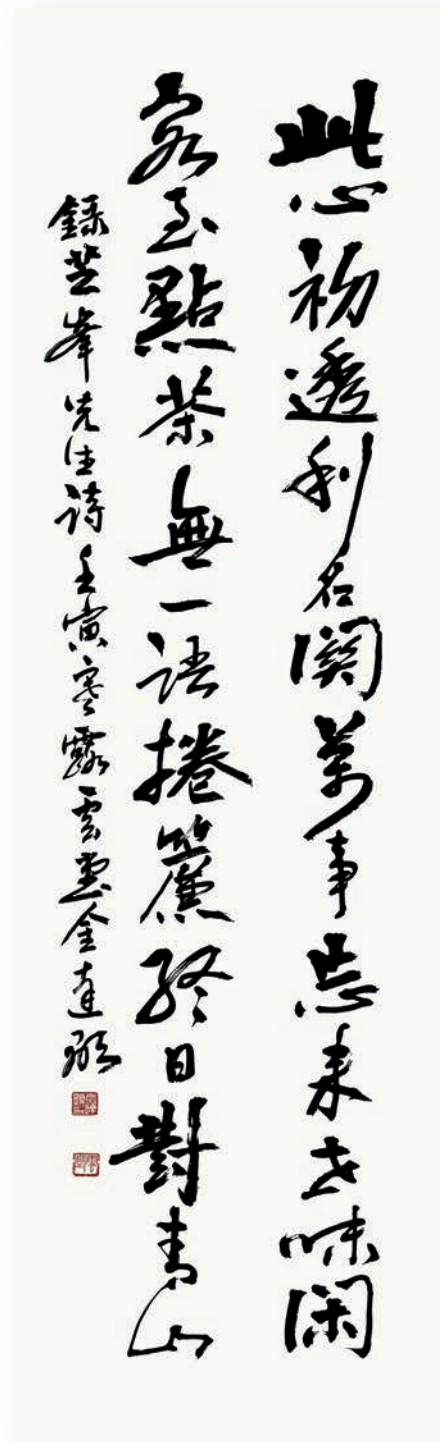 此心初透利名関萬事忘來世味閑
客至點茶無一語捲簾終日對青山
錄芝峯先生詩壬寅寒露雲金達